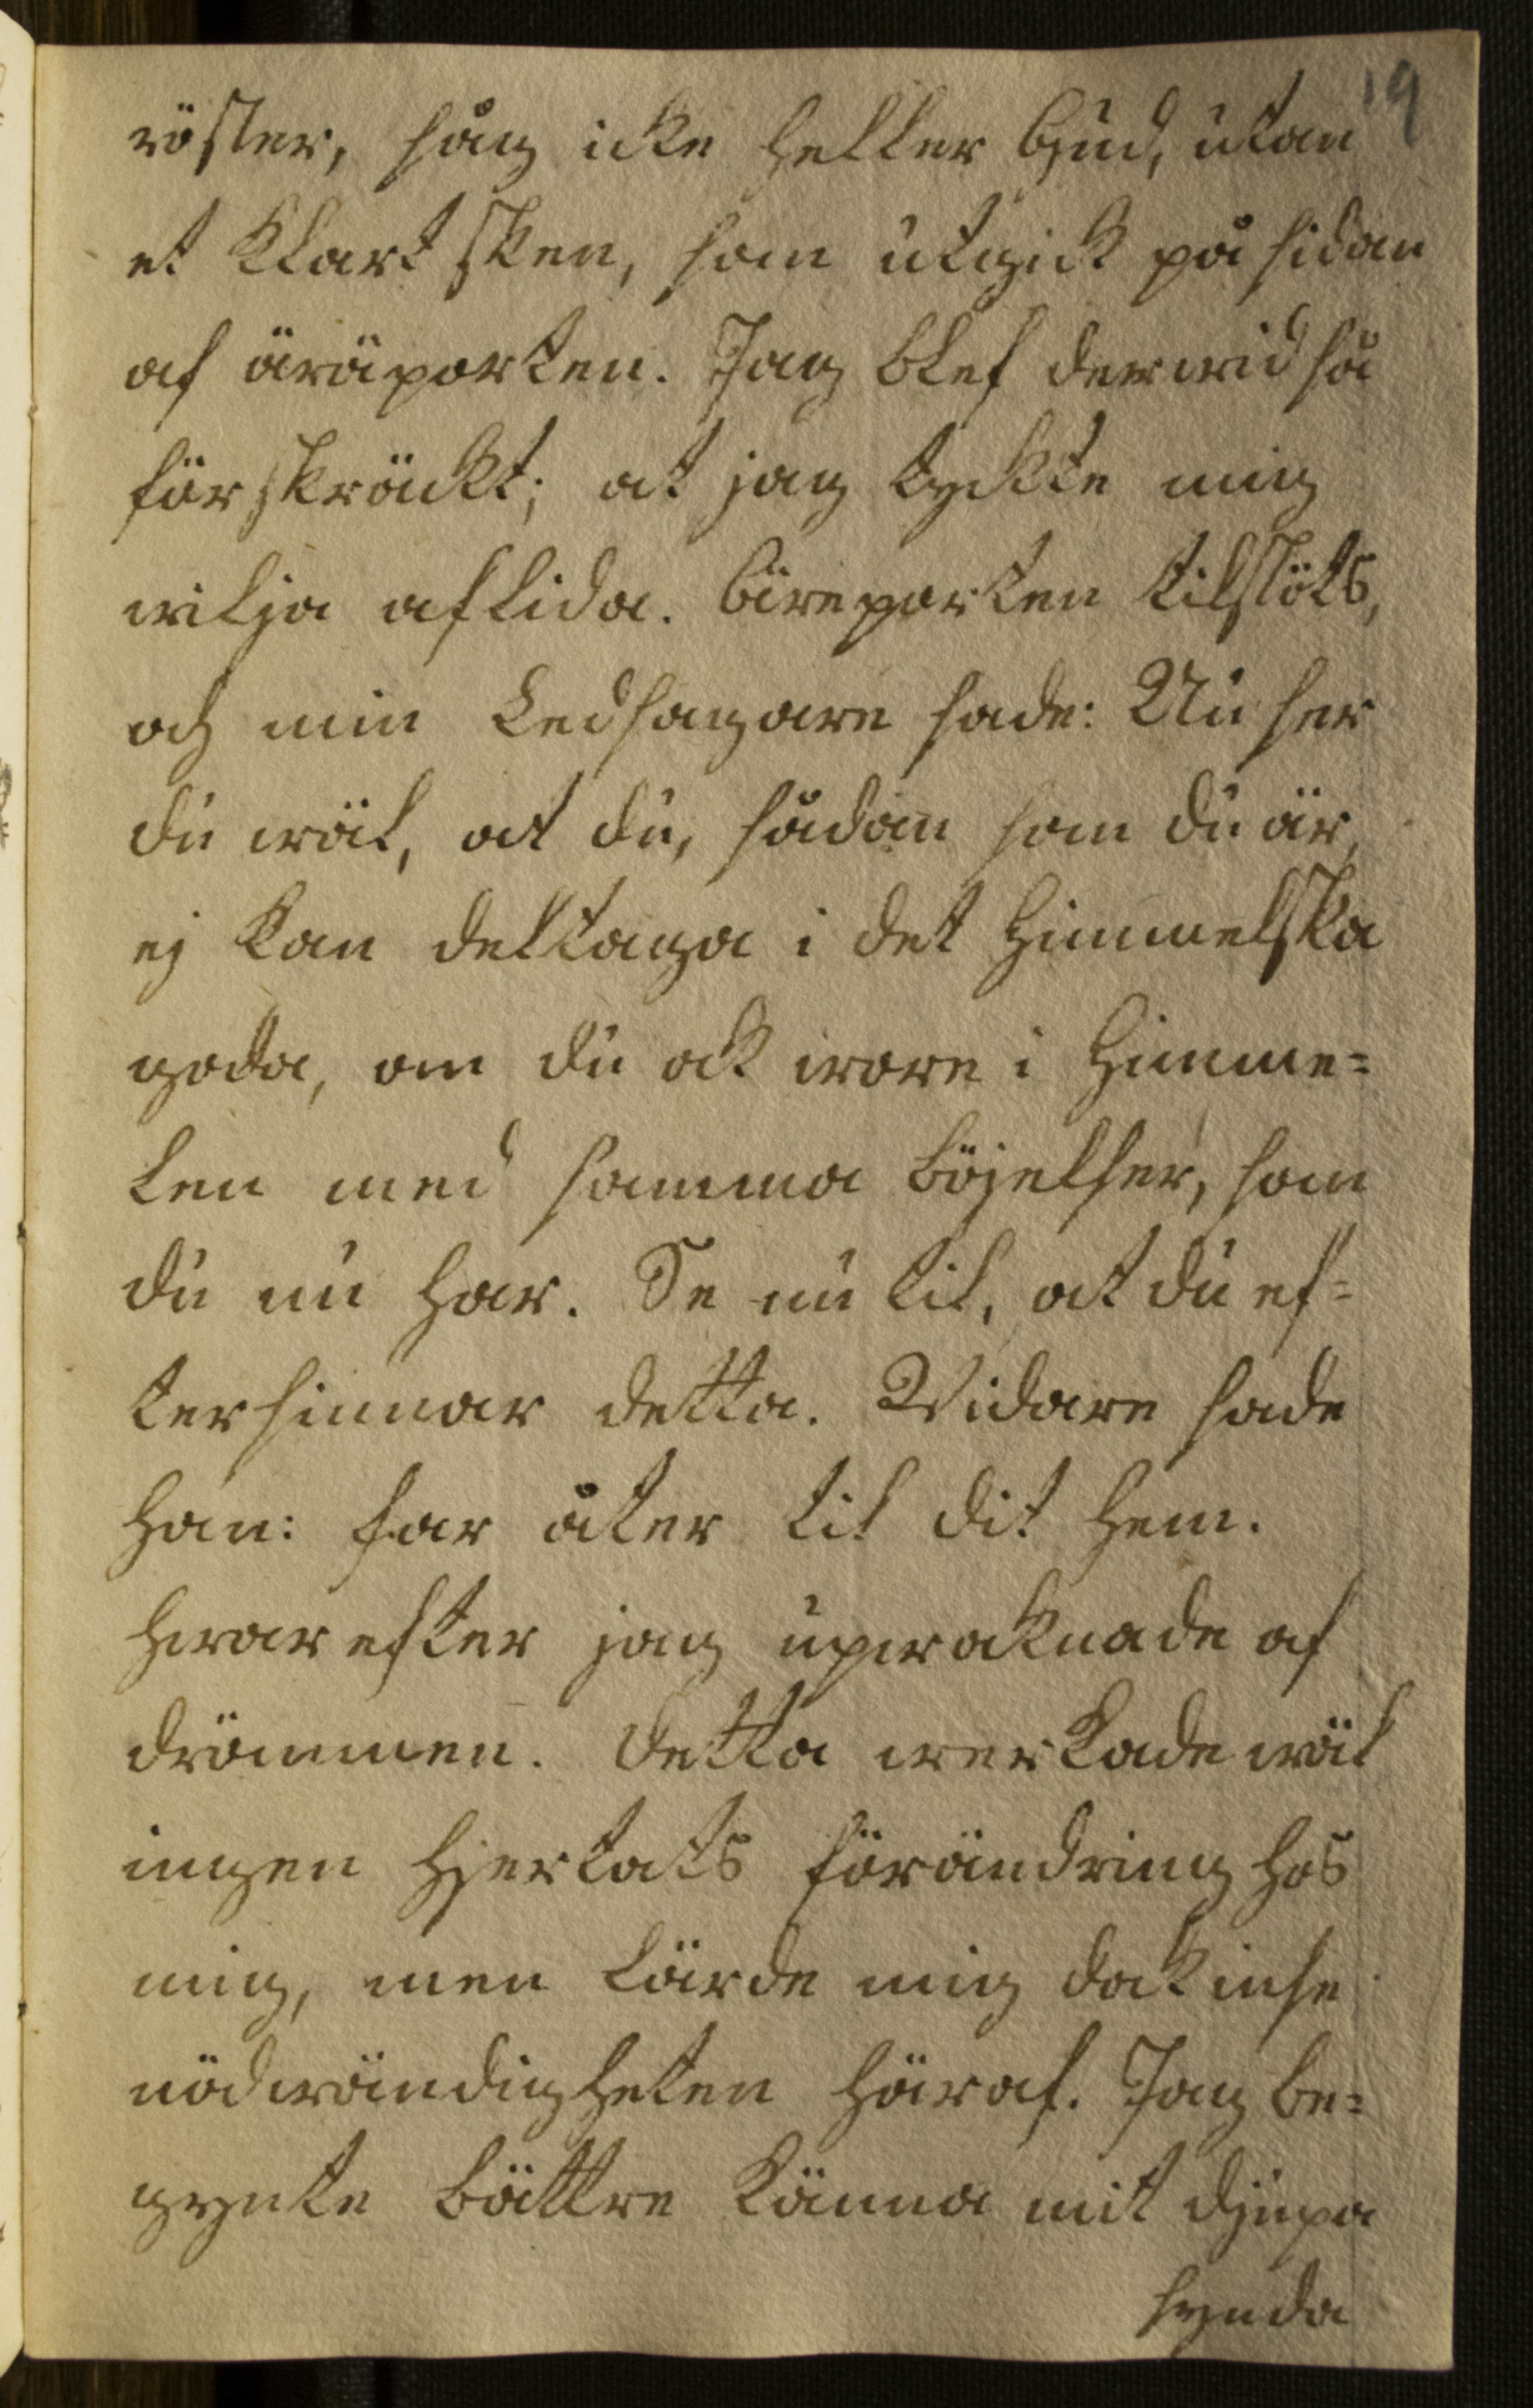 19
röster, såg icke heller Gud, utan
et klart sken, som utgick på sidan
af äräporten. Jag blef derwid så
förskräckt; at jag tyckte mig
wilja aflida. Äreporten tilslöts,
och min Ledsagare sade: Nu ser
du wäl, at du, sådan som du är,
ej kan deltaga i det Himmelska
goda, om du ock wore i Himme=
len med samma böjelser, som
du nu har. Se nu til, at du ef=
tersinnar detta. Vidare sade
han: far åter til dit hem.
hwarefter jag upwaknade af
drömmen. Detta werkade wäl
ingen hjertats förändring hos
mig, men lärde mig dock inse
nödwändigheten häraf. Jag be=
gynte bättre känna mit djupa
synda